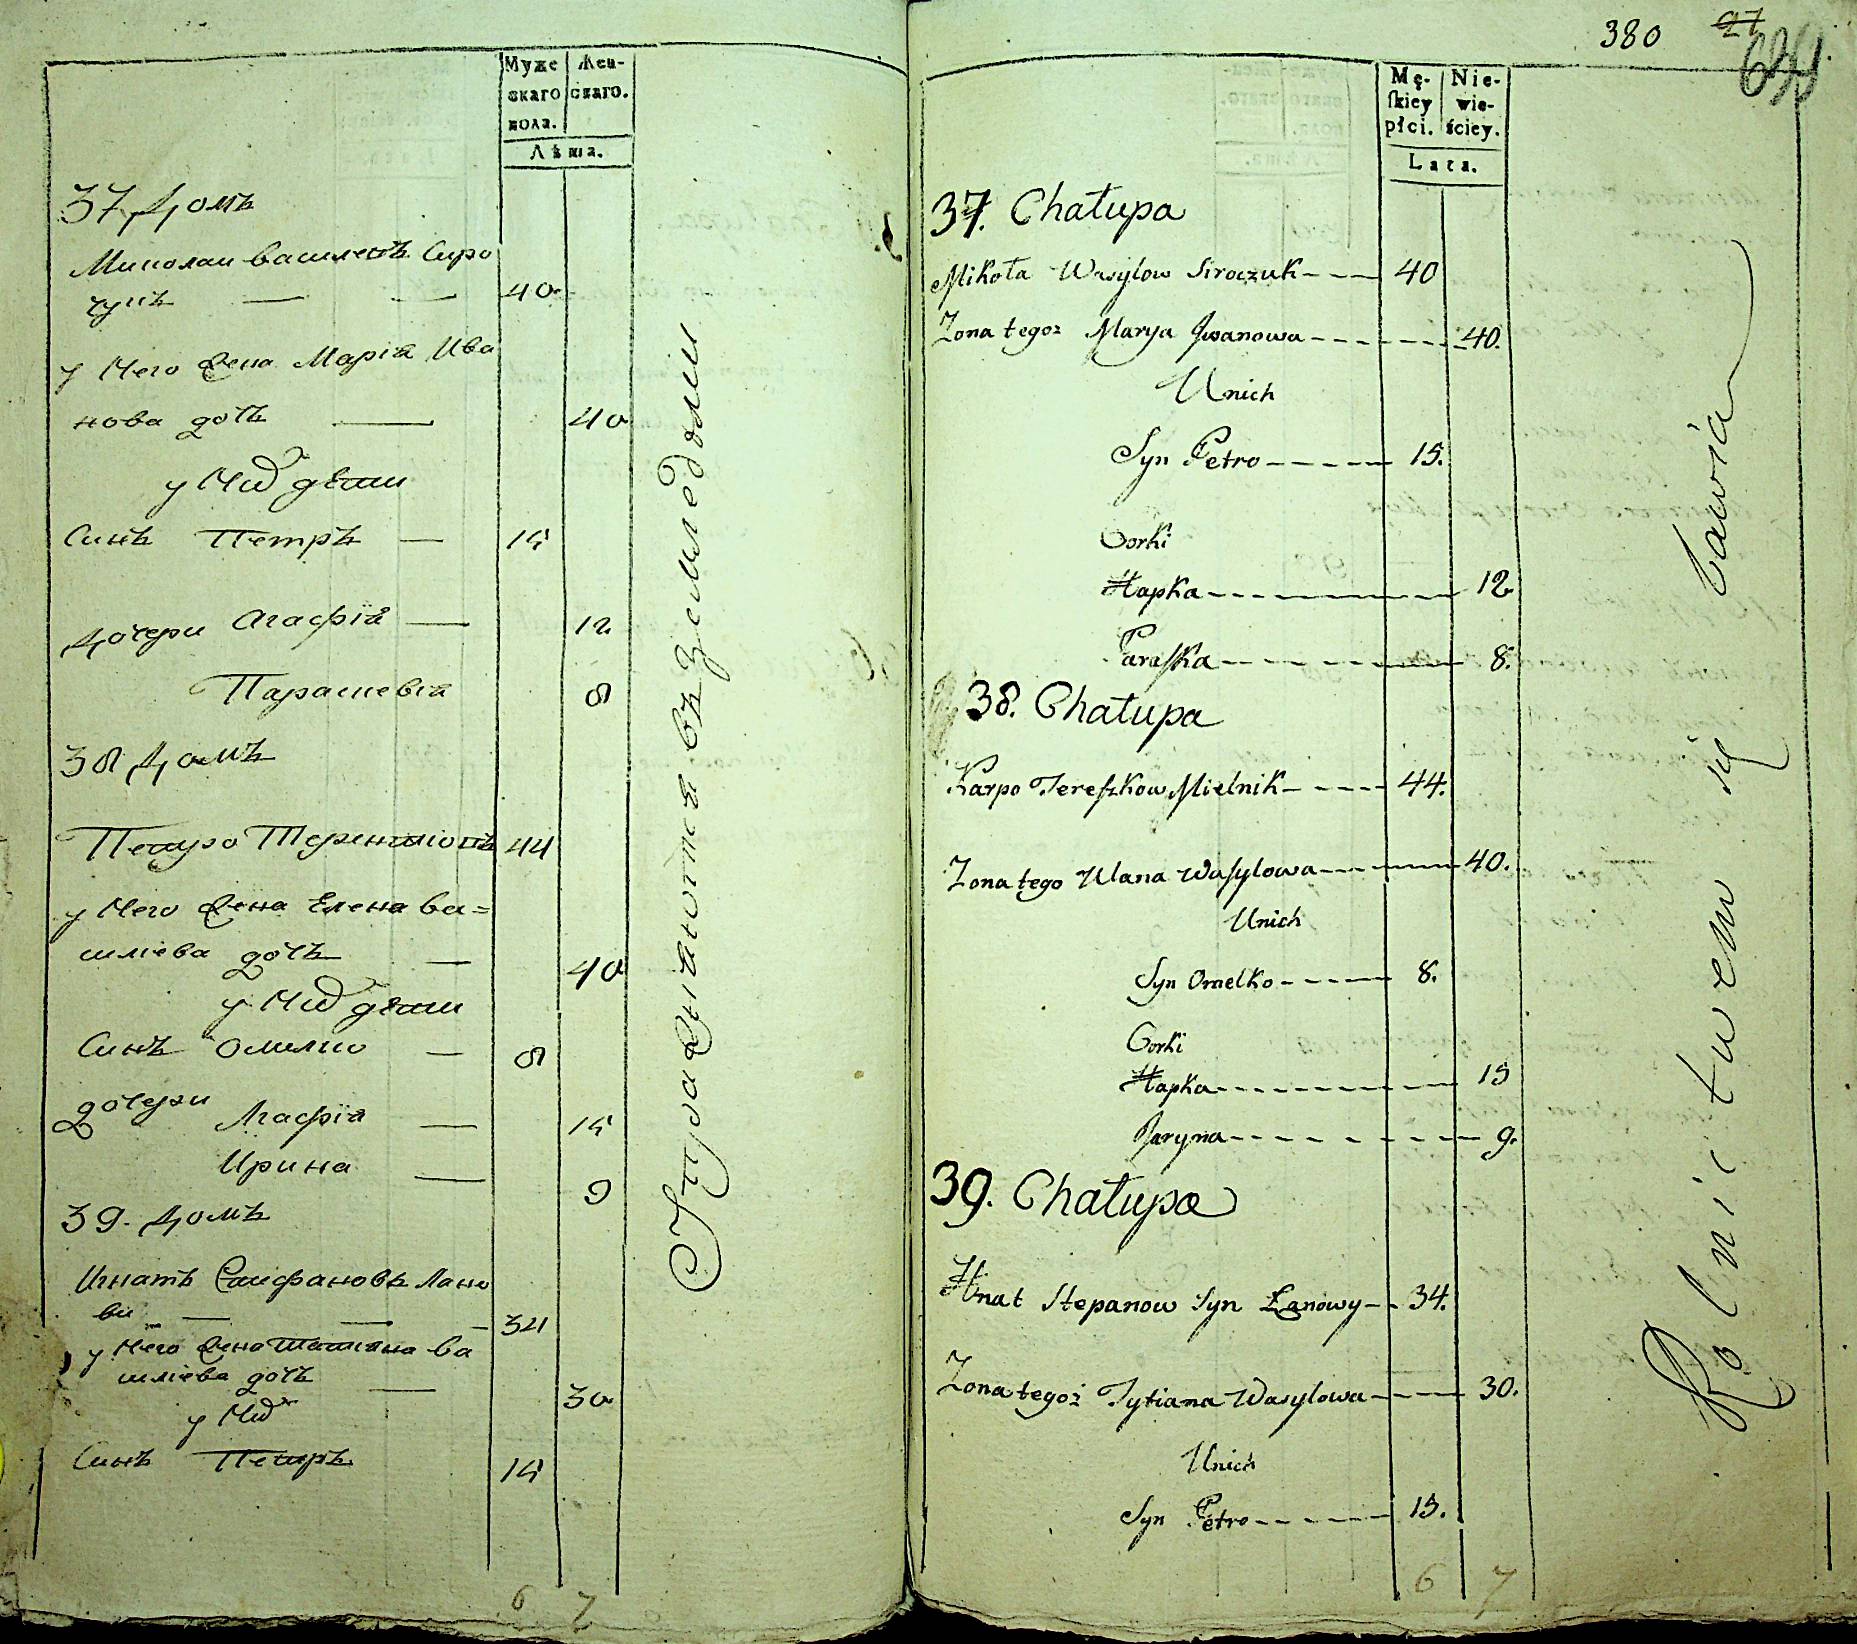 Муже Жен-
скаго скаго.
пола.
Лѣта.
37 Домъ
Миколаи Василевъ Сиро
чукъ — — 40
у Него Жена Марія Ива
нова дочь — 40
у Них дѣти
Синъ Петръ — 15
Дочери Агафія — 12
Парасковія 8
38 Домъ
Терентіовъ 44
у Него Жена Елена Ва=
силіева дочь — 40
у Них дѣти
Синъ Омелко — 8
дочери Агафія — 15
Ирина — 9
39. Домъ
Игнатъ Стефановъ Лано
ви — — — 34
у Него Жена Татіяна Ва
силіева дочь — 30
у Них
Синъ Петръ 15
6 7
въ Земледѣліи
380 27
Mę- Nie-
skiey wie-
płci. ściey.
Lata.
37. Chałupa
Mikoła Wasylow Siroczuk 40
Zona tegoż Marya Jwanowa 40.
Unich
Syn Petro 15.
Corki
Hapka 12
Paraska 8.
38. Chałupa
Karpo Tereszkow Mielnik 44.
Zona tego Ulana Wasylowa 40.
Unich
Syn Omelko 8.
Corki
Hapka 15
Jaryna 9.
39. Chałupa
Hnat Stepanow Syn Łanowy 34.
Zona tegoż Tytiana Wasylowa 30.
Unich
Syn Petro 15.
6 7
Rolnictwem się bawią